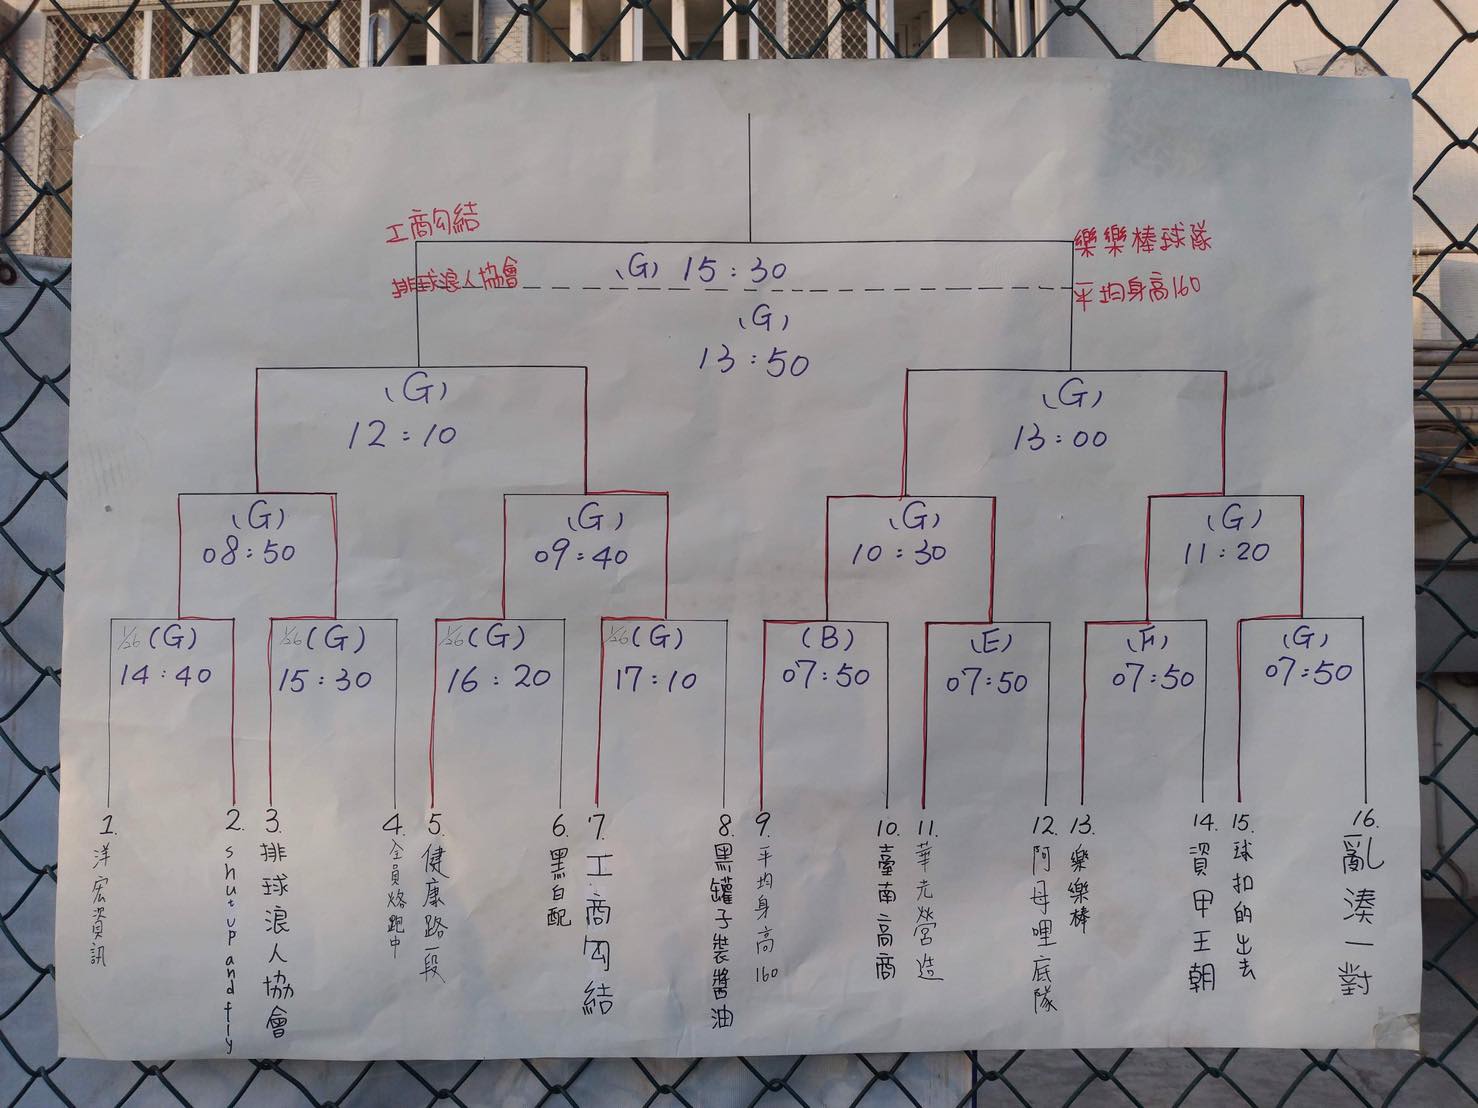 工商勾結
樂樂棒球隊
(G) 15:30
排球浪人協會
平均身高160
(G)
13:50
(G)
12:10
(G)
13:00
(G)
08:50
(G)
09:40
(G)
10:30
(G)
11:20
1/26 (G)
14:40
1/26 (G)
15:30
1/26 (G)
16:20
1/26 (G)
17:10
(B)
07:50
(E)
07:50
(F)
07:50
(G)
07:50
1. 洋宏資訊
2. shut up and fly
3. 排球浪人協會
4. 全員烙跑中
5. 健康路一段
6. 黑白配
7. 工商勾結
8. 黑罐子裝醬油
9. 平均身高160
10. 臺南高商
11. 華光營造
12. 阿母哩底隊
13. 樂樂棒
14. 資甲王朝
15. 球扣的出去
16. 亂湊一對